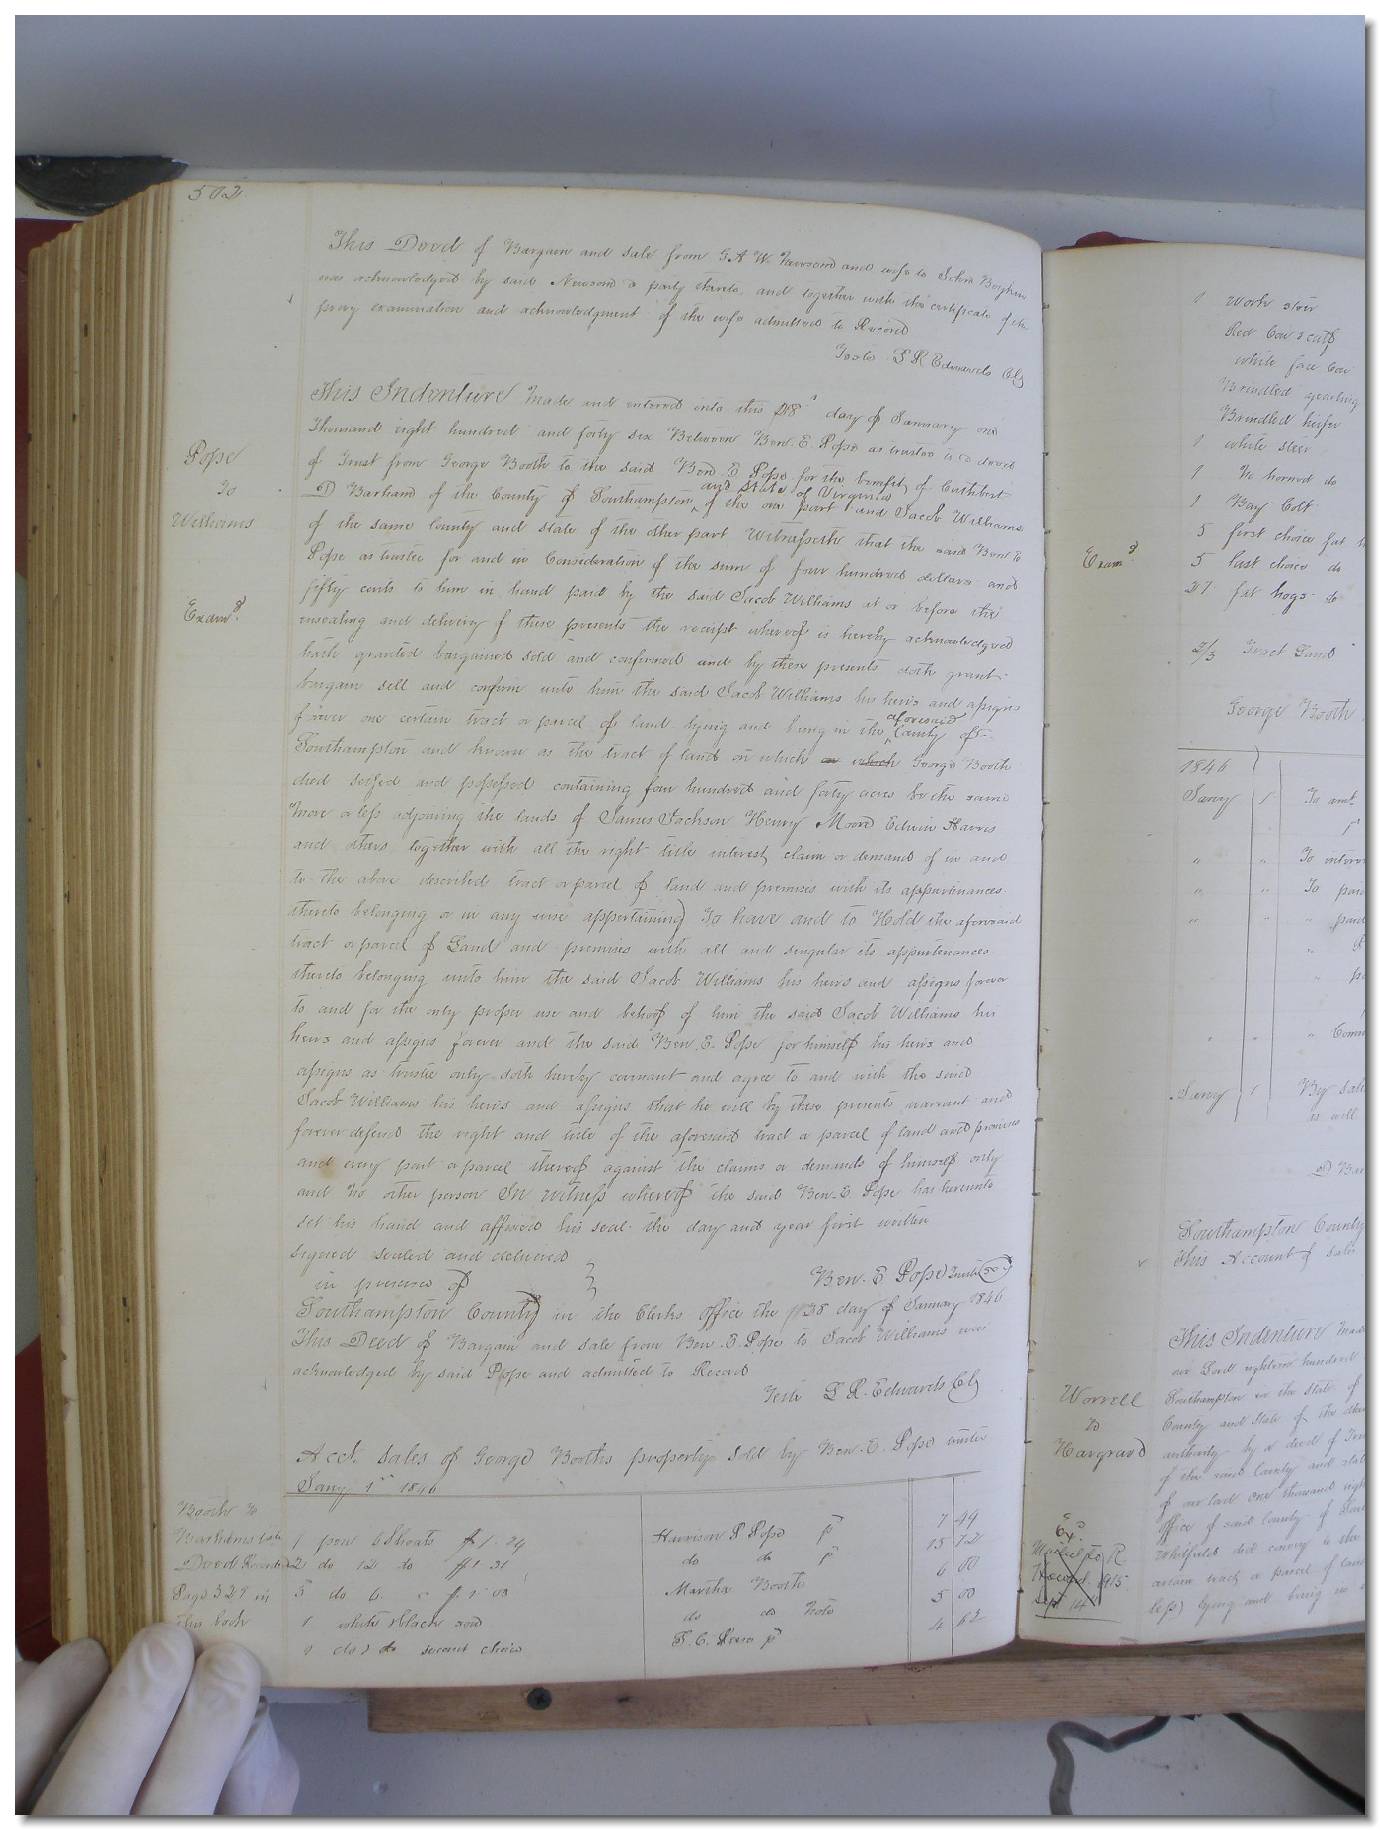 502
This Deed of Bargain and sale from G A W. Newsom and wife to
was acknowledged by said Newsom a party thereto, and together with the certificate of the
privy examination and acknowledgment of the wife admitted to Record
Teste L R Edwards Clk
This Indenture Made and entered into this 28th day of January one
Thousand eight hundred and forty six Between Ben. E. Pope as trustee in a deed
Pope
to
Williams
Examd
of Trust from George Booth to the said Ben. E. Pope for the benefit of Cuthbert
D Barham of the County of Southampton and State of Virginia of the one part and Jacob Williams
of the same County and state of the other part Witnesseth that the said Ben E
Pope as trustee for and in Consideration of the sum of four hundred dollars and
fifty cents to him in hand paid by the said Jacob Williams at or before the
ensealing and delivery of these presents the receipt whereof is hereby acknowledged
hath granted bargained sold and confirmed and by these presents doth grant
bargain sell and confirm unto him the said Jacob Williams his heirs and assigns
forever one certain tract or parcel of land lying and being in the aforesaid County of
Southampton and known as the tract of land on which George Booth
died seized and possessed containing four hundred and forty acres be the same
more or less adjoining the lands of James Jackson Henry Moore Edwin Harris
and others together with all the right title interest, claim or demand of in and
to the above described tract or parcel of land and premises with its appurtenances
thereto belonging or in any wise appertaining) To have and to Hold the aforesaid
tract or parcel of Land and premises with all and singular its appurtenances
thereto belonging unto him the said Jacob Williams his heirs and assigns forever
to and for the only proper use and behoof of him the said Jacob Williams his
heirs and assigns forever and the said Ben. E. Pope for himself his heirs and
assigns as trustee only doth hereby covenant and agree to and with the said
Jacob Williams his heirs and assigns that he will by these presents warrant and
forever defend the right and title of the aforesaid tract or parcel of land and premises
and every part or parcel thereof against the claims or demands of himself only
and no other person In witness whereof the said Ben. E. Pope has hereunto
set his hand and affixed his seal the day and year first written
Signed sealed and delivered
in presence of
Ben. E Pope Trustee
Southampton County in the Clerks office the 28 day of January 1846
This Deed of Bargain and sale from Ben. E. Pope to Jacob Williams was
acknowledged by said Pope and admitted to Record
Teste L R. Edwards Clk
Acct. Sales of George Booths property sold by Ben. E. Pope trustee
Jany 1st 1846
Booth to
Barhams
Deed Recorded
Page 329 in
this book
1 pen 6 Shoats Harrison P. Pope 7 44
2 do 12 do do do 15 72
3 do 6 Martha Booth 6 00
1 white & black sow do do Note 5 00
1 do do second choice 4 62
1 Work steer
Red Cow & calf
white face Cow
Brindled yearling
Brindled heifer
1 white steer
1 No horned do
1 Bay Colt
5 first choice fat
5 last choice do
27 fat hogs do
Examd
2/3 Tract Land
George Booth
1846
Jany 1 To amt
" " To
" " To paid
" " " paid
Jany 1 By sale
Southampton County
This Account of sales
This Indenture Made
Worrell
to
Hargrave
our Lord eighteen hundred
Southampton in the state of
County and State of the other
authority by a deed of
of the said County and state
of our lord one thousand eight
office of said County of
Whitfield did convey to the
certain tract or parcel of land
less) lying and being in